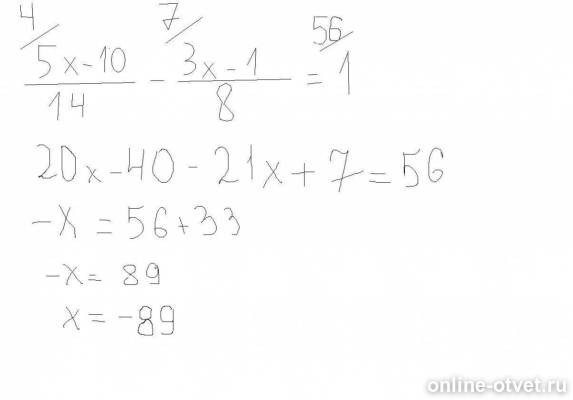 4/ 7/ 56/
5x-10 / 14 - 3x-1 / 8 = 1
20x-40-21x+7=56
-x=56+33
-x=89
x=-89
online-otvet.ru